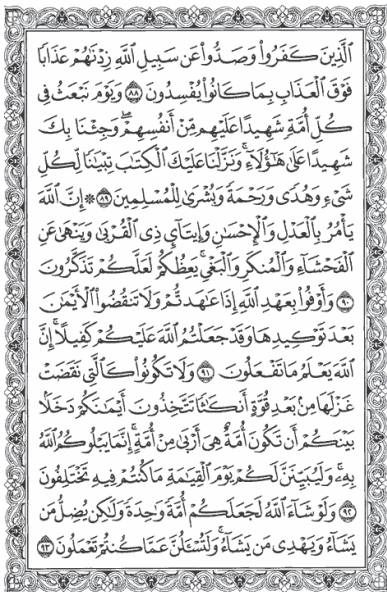 الَّذِينَ كَفَرُوا۟ وَصَدُّوا۟ عَن سَبِيلِ اللَّهِ زِدْنَٰهُمْ عَذَابًا
فَوْقَ الْعَذَابِ بِمَا كَانُوا۟ يُفْسِدُونَ ٨٨ وَيَوْمَ نَبْعَثُ فِى
كُلِّ أُمَّةٍ شَهِيدًا عَلَيْهِم مِّنْ أَنفُسِهِمْ ۖ وَجِئْنَا بِكَ
شَهِيدًا عَلَىٰ هَٰٓؤُلَآءِ ۚ وَنَزَّلْنَا عَلَيْكَ الْكِتَٰبَ تِبْيَٰنًا لِّكُلِّ
شَىْءٍ وَهُدًى وَرَحْمَةً وَبُشْرَىٰ لِلْمُسْلِمِينَ ٨٩ ۞ إِنَّ اللَّهَ
يَأْمُرُ بِالْعَدْلِ وَالْإِحْسَٰنِ وَإِيتَآئِ ذِى الْقُرْبَىٰ وَيَنْهَىٰ عَنِ
الْفَحْشَآءِ وَالْمُنكَرِ وَالْبَغْىِ ۚ يَعِظُكُمْ لَعَلَّكُمْ تَذَكَّرُونَ
٩٠ وَأَوْفُوا۟ بِعَهْدِ اللَّهِ إِذَا عَٰهَدتُّمْ وَلَا تَنقُضُوا۟ الْأَيْمَٰنَ
بَعْدَ تَوْكِيدِهَا وَقَدْ جَعَلْتُمُ اللَّهَ عَلَيْكُمْ كَفِيلًا ۚ إِنَّ
اللَّهَ يَعْلَمُ مَا تَفْعَلُونَ ٩١ وَلَا تَكُونُوا۟ كَالَّتِى نَقَضَتْ
غَزْلَهَا مِنۢ بَعْدِ قُوَّةٍ أَنكَٰثًا تَتَّخِذُونَ أَيْمَٰنَكُمْ دَخَلًۢا
بَيْنَكُمْ أَن تَكُونَ أُمَّةٌ هِىَ أَرْبَىٰ مِنْ أُمَّةٍ ۚ إِنَّمَا يَبْلُوكُمُ اللَّهُ
بِهِۦ ۚ وَلَيُبَيِّنَنَّ لَكُمْ يَوْمَ الْقِيَٰمَةِ مَا كُنتُمْ فِيهِ تَخْتَلِفُونَ
٩٢ وَلَوْ شَآءَ اللَّهُ لَجَعَلَكُمْ أُمَّةً وَٰحِدَةً وَلَٰكِن يُضِلُّ مَن
يَشَآءُ وَيَهْدِى مَن يَشَآءُ ۚ وَلَتُسْـَٔلُنَّ عَمَّا كُنتُمْ تَعْمَلُونَ ٩٣